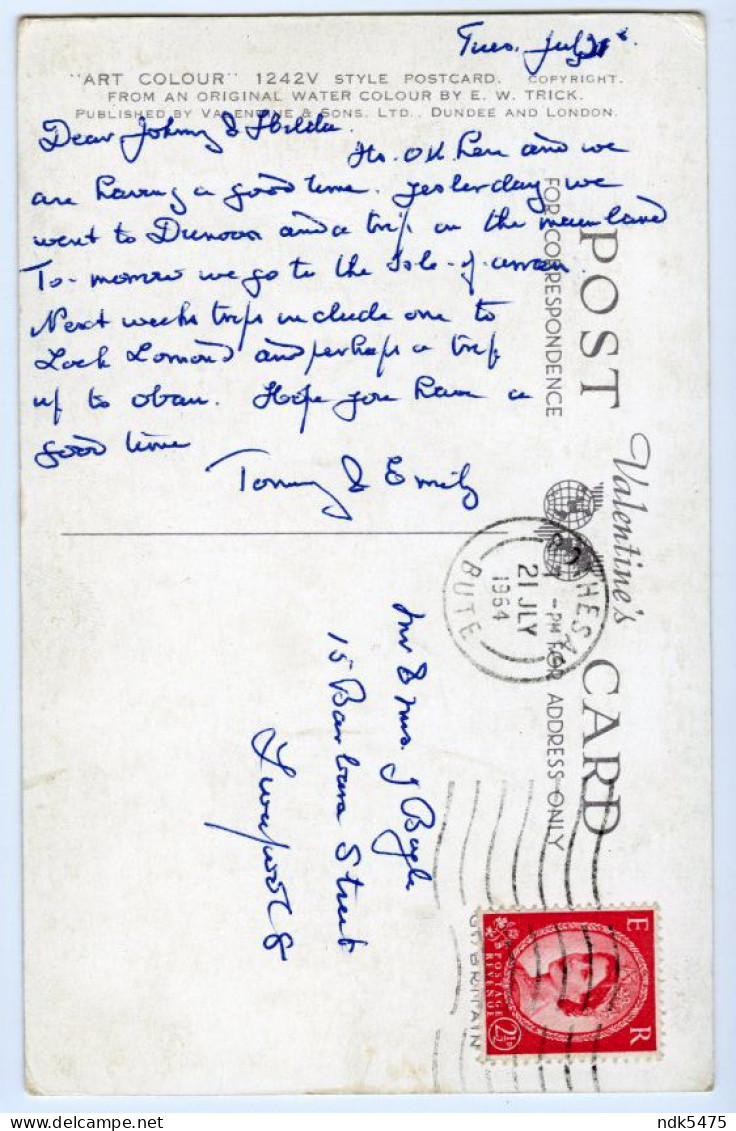 Tues. July 21st.
"ART COLOUR" 1242V STYLE POSTCARD. COPYRIGHT.
FROM AN ORIGINAL WATER COLOUR BY E. W. TRICK.
PUBLISHED BY VALENTINE & SONS. LTD., DUNDEE AND LONDON.
Dear Johnny & Hilda.
Its. OK here and we
are having a good time. yesterday we
went to Dunoon and a trip on the mainland
To-morrow we go to the Isle-of-arran.
Next weeks trips include one to
Lock Lomond and perhaps a trip
up to oban. Hope you have a
good time
Tommy & Emily
POST CARD
Valentine's
FOR CORRESPONDENCE
FOR ADDRESS ONLY
ROTHESAY
-PM
21 JLY
1964
BUTE
Mr & Mrs. J Boyle
15 Barbara Street
Liverpool 8
GT. BRITAIN
E R
POSTAGE
REVENUE
2½D
ndk5475